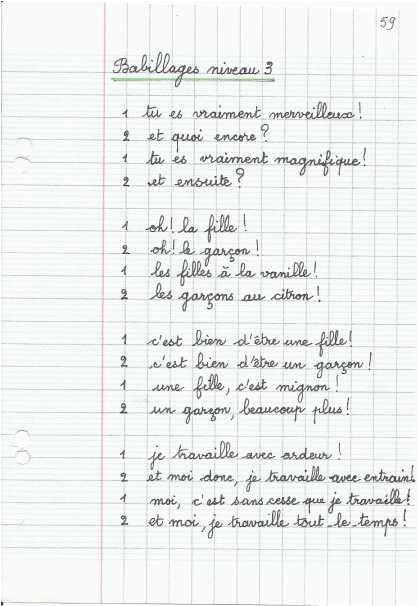 59
Babillages niveau 3
1 tu es vraiment merveilleux!
2 et quoi encore?
1 tu es vraiment magnifique!
2 et ensuite?
1 oh! la fille!
2 oh! le garçon!
1 les filles à la vanille!
2 les garçons au citron!
1 c'est bien d'être une fille!
2 c'est bien d'être un garçon!
1 une fille, c'est mignon!
2 un garçon, beaucoup plus!
1 je travaille avec ardeur!
2 et moi donc, je travaille avec entrain!
1 moi, c'est sans cesse que je travaille!
2 et moi, je travaille tout-le-temps!